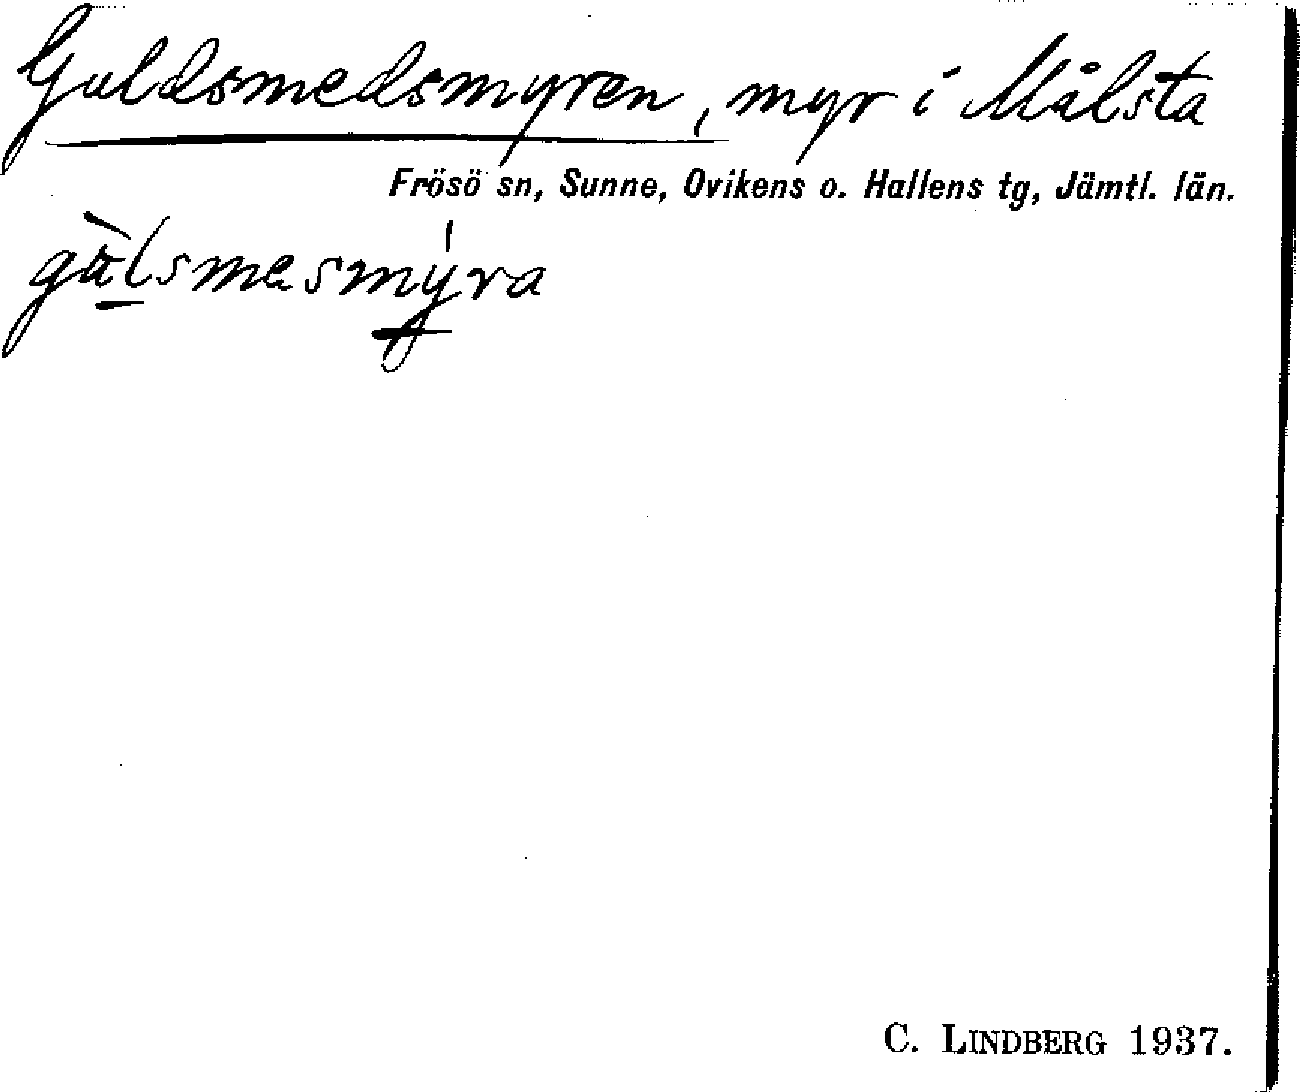 Guldsmedsmyren, myr i Målsta
Frösö sn, Sunne, Ovikens o. Hallens tg, Jämtl. län.
gùlsmesmýra
C. LINDBERG 1937.